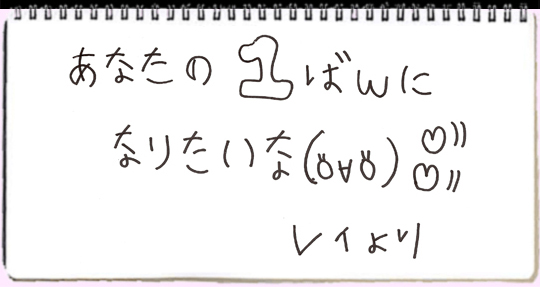 あなたの1ばんに
なりたいな(ŏ∀ŏ)♡))♡))
レイより